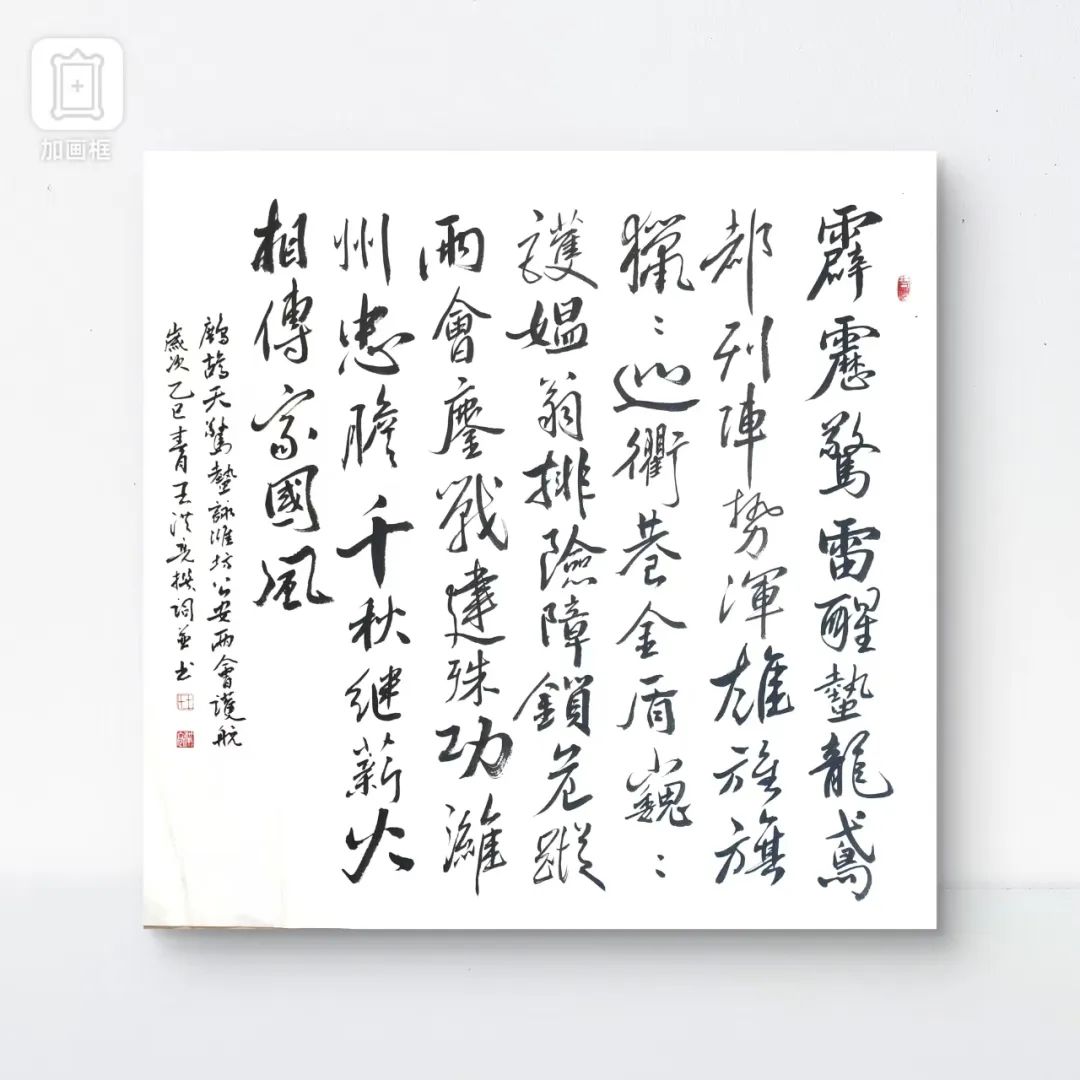 加画框
霹靂驚雷醒蟄龍鳶
都列陣勢渾雄旌旗
獵：巡衢巷金盾巍：
護媪翁排險障鎖危蹤
兩會鏖戰建殊功濰
州忠膽千秋继薪火
相傳家國風
鷓鴣天驚蟄詠濰坊公安兩會護航
歲次乙巳王洪亮撰詞並书